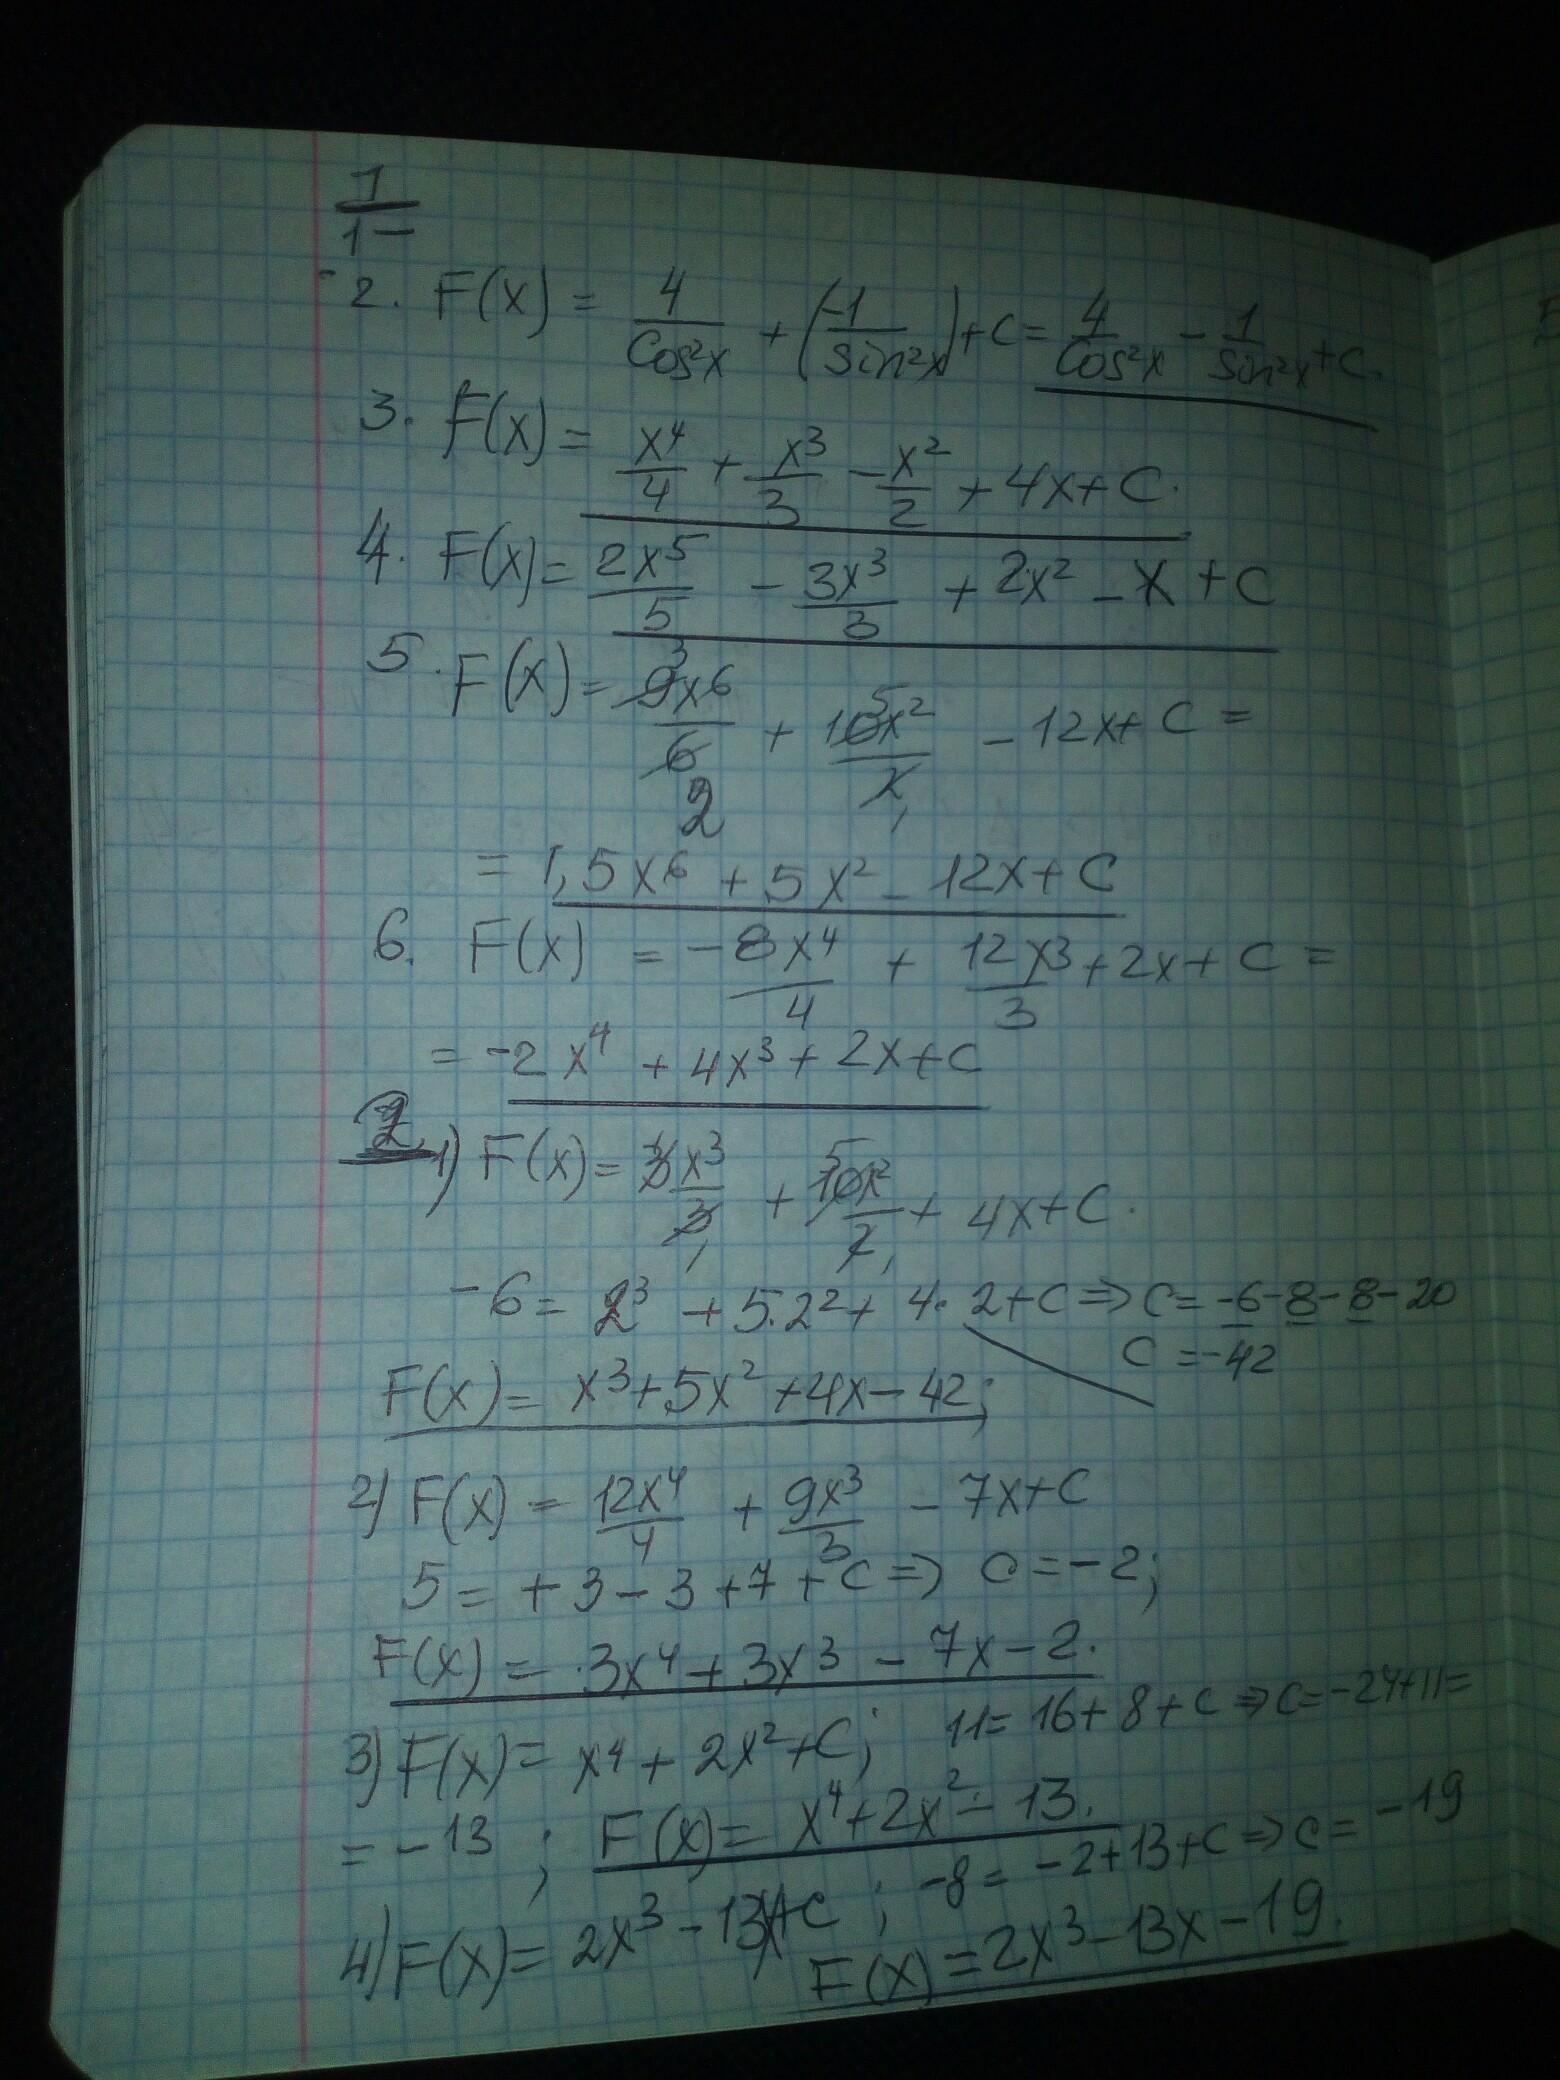 1
1 –
2. F(x) = 4/cos²x + (-1/sin²x) + c = 4/cos²x - 1/sin²x + c.
3. F(x) = x⁴/4 + x³/3 - x²/2 + 4x + C.
4. F(x) = 2x⁵/5 - 3x³/3 + 2x² - x + C
5. F(x) = 9x⁶/6 + 10x²/2 - 12x + C =
= 1,5x⁶ + 5x² - 12x + C
6. F(x) = -8x⁴/4 + 12x³/3 + 2x + C =
= -2x⁴ + 4x³ + 2x + C
2 1) F(x) = 3x³/3 + 10x²/2 + 4x + C.
-6 = 2³ + 5.2² + 4. 2 + C => C = -6 - 8 - 8 - 20
C = -42
F(x) = x³ + 5x² + 4x - 42;
2) F(x) = 12x⁴/4 + 9x³/3 - 7x + C
5 = + 3 - 3 + 7 + C => C = -2;
F(x) = 3x⁴ + 3x³ - 7x - 2.
3) F(x) = x⁴ + 2x² + C; 11 = 16 + 8 + C => C = -24 + 11 =
= -13 ; F(x) = x⁴ + 2x² - 13.
4) F(x) = 2x³ - 13x + C ; -8 = -2 + 13 + C => C = -19
F(x) = 2x³ - 13x - 19.